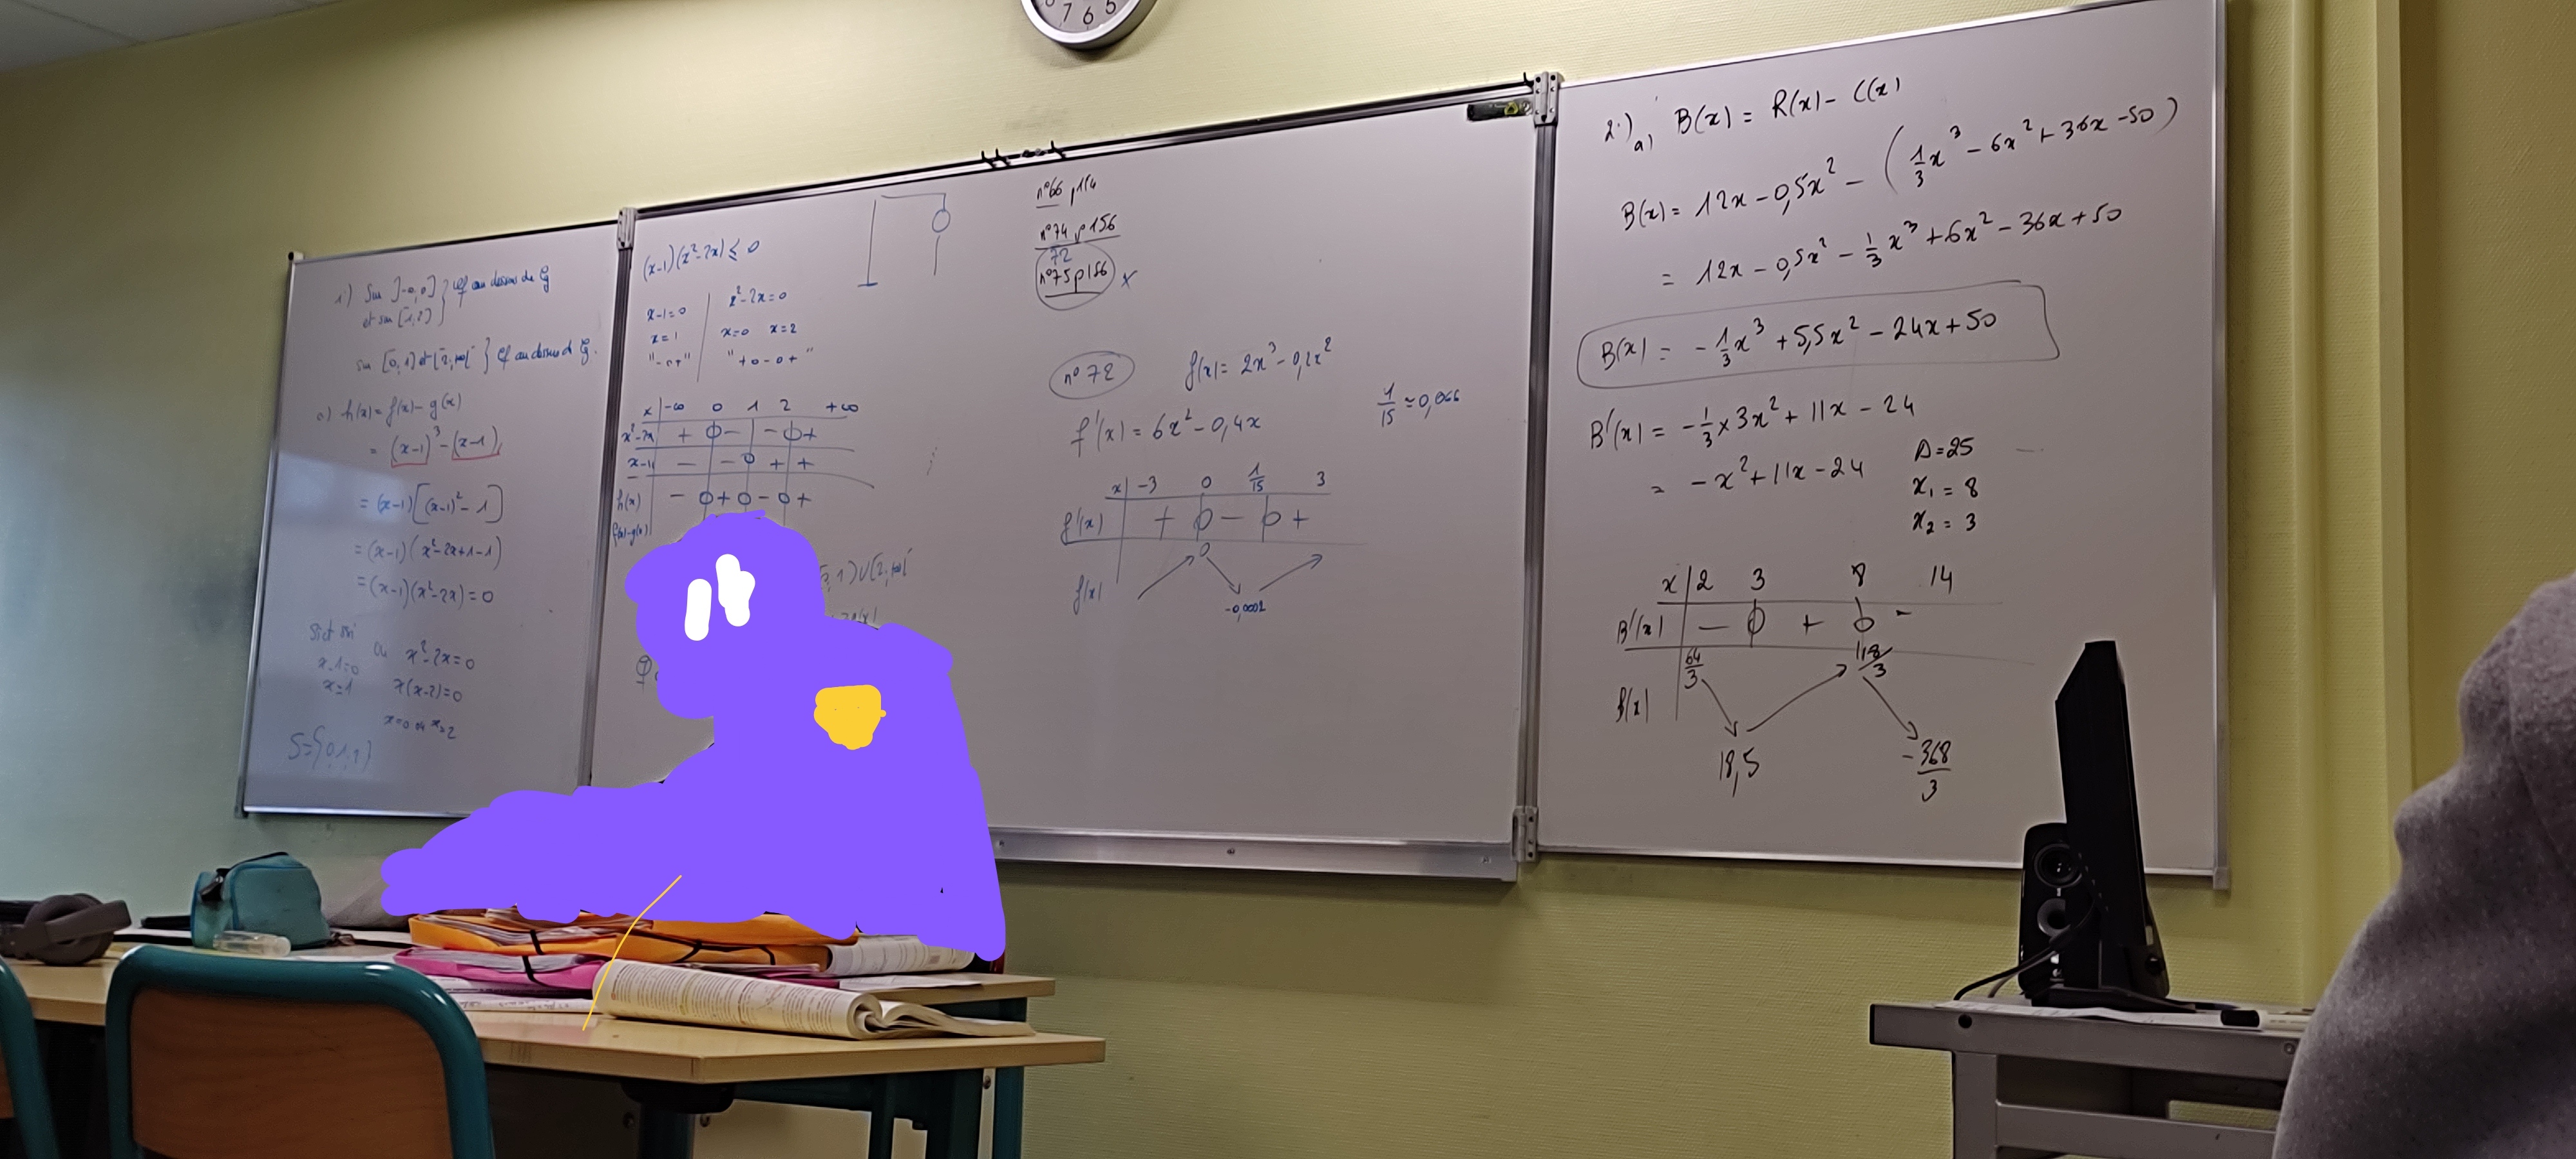 7 6 5
1°) Sur ]-∞, 0]
et sur [1, 2]
au dessus de Cg
sur [0, 1] et [2, +∞[ } Cf au dessus d Cg.
h(x) = f(x) - g(x)
= (x-1)³ - (x-1)
= (x-1)[(x-1)² - 1]
= (x-1)(x²-2x+1-1)
= (x-1)(x²-2x) = 0
ou x²-2x=0
x-1=0
x=1 x(x-2)=0
x=0 ou x=2
S={0,1,2}
(x-1)(x²-2x) ≤ 0
x-1=0 x²-2x=0
x=1 x=0 x=2
"-0+" "+0-0+"
x -∞ 0 1 2 +∞
x²-2x + 0 - - 0 +
x-1 - - 0 + +
h(x) - 0 + 0 - 0 +
f(x)-g(x)
1) ∪ [2, +∞[
n°66 p154
n°74 p156
72
n°75 p156 x
n°72 f(x) = 2x³ - 0,2x²
1/15 ≈ 0,066
f'(x) = 6x² - 0,4x
x -3 0 1/15 3
f'(x) + 0 - 0 +
0
f(x)
-0,0001
2°) a) B(x) = R(x) - C(x)
B(x) = 12x - 0,5x² - (1/3x³ - 6x² + 36x - 50)
= 12x - 0,5x² - 1/3x³ + 6x² - 36x + 50
B(x) = -1/3x³ + 5,5x² - 24x + 50
B'(x) = -1/3 × 3x² + 11x - 24
= -x² + 11x - 24
Δ=25
x₁ = 8
x₂ = 3
x 2 3 8 14
B'(x) - 0 + 0 -
64/3 118/3
f(x)
18,5 -368/3